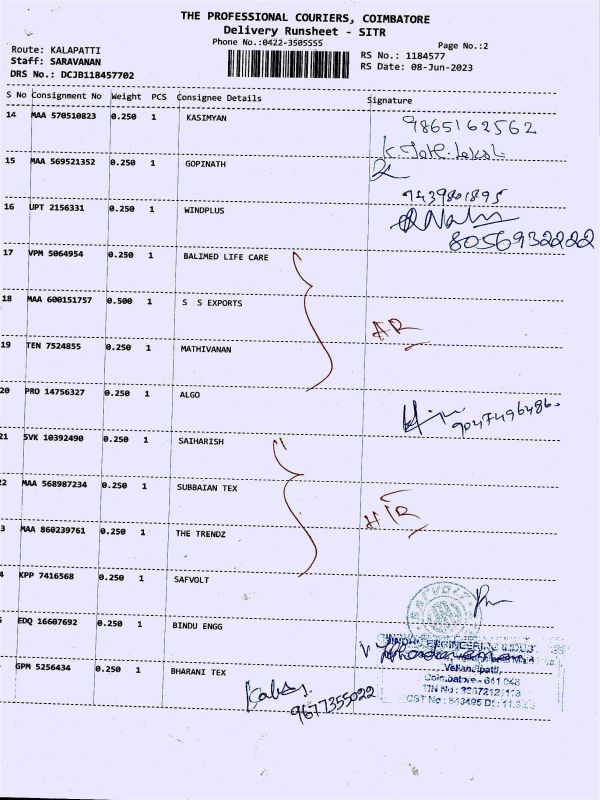 THE PROFESSIONAL COURIERS, COIMBATORE
Delivery Runsheet - SITR
Phone No.:0422-3505555
Page No.:2
Route: KALAPATTI
Staff: SARAVANAN
DRS No.: DCJB118457702
RS No.: 1184577
RS Date: 08-Jun-2023
S No Consignment No Weight PCS Consignee Details Signature
14 MAA 570510823 0.250 1 KASIMYAN 9865162562
15 MAA 569521352 0.250 1 GOPINATH
9439801895
16 UPT 2156331 0.250 1 WINDPLUS
8056932222
17 VPM 5064954 0.250 1 BALIMED LIFE CARE
18 MAA 600151757 0.500 1 S S EXPORTS
AR
19 TEN 7524855 0.250 1 MATHIVANAN
20 PRO 14756327 0.250 1 ALGO
9047496486
21 SVK 10392490 0.250 1 SAIHARISH
2 MAA 568987234 0.250 1 SUBBAIAN TEX
HTR
3 MAA 860239761 0.250 1 THE TRENDZ
4 KPP 7416568 0.250 1 SAFVOLT
SAFVOLT
EDQ 16607692 0.250 1 BINDU ENGG
ENGINEERING INDUST
Vellanaipatti,
Coimbatore - 641 048
GPM 5256434 0.250 1 BHARANI TEX
9677355022